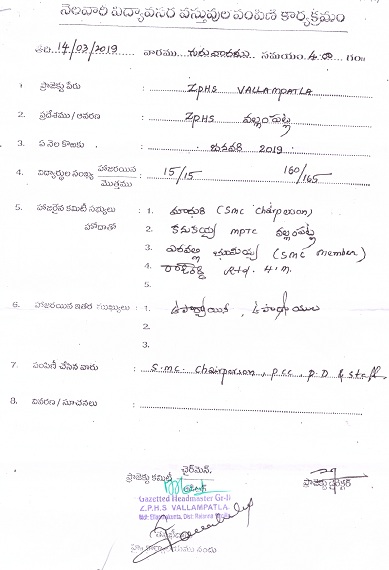 నెలవారి విద్యావసర వస్తువుల పంపిణీ కార్యక్రమం
తేది 14/03/2019 వారము గురువారము సమయం 4.00 గం
1 ప్రాజెక్టు పేరు : ZPHS VALLAMPATLA
2. ప్రదేశము / ఆవరణ : ZPHS వల్లంపట్ల
3. ఏ నెల కొరకు : 2019
4. విద్యార్థుల సంఖ్య హాజరయిన / మొత్తము : 15/15 160/165
5. హాజరైన కమిటీ సభ్యులు : 1. మాధురి (SMC Chairperson)
హోదాతో 2. కనకయ్య MPTC వల్లంపట్ల
3. (SMC member)
4. Rtd. H.M.
5.
6. హాజరయిన ఇతర ముఖ్యులు : 1. ఉపాధ్యాయిని, ఉపాధ్యాయులు
2.
3.
7. పంపిణీ చేసిన వారు : S.M.C. Chairperson, P.D & Staff
8. వివరణ / సూచనలు :
చైర్మెన్,
ప్రాజెక్టు కమిటీ
ప్రాజెక్టు డైరెక్టర్
Gazetted Headmaster Gr-II
Z.P.H.S VALLAMPATLA
Mdl: Ellanthakunta, Dist: Rajanna Sircilla